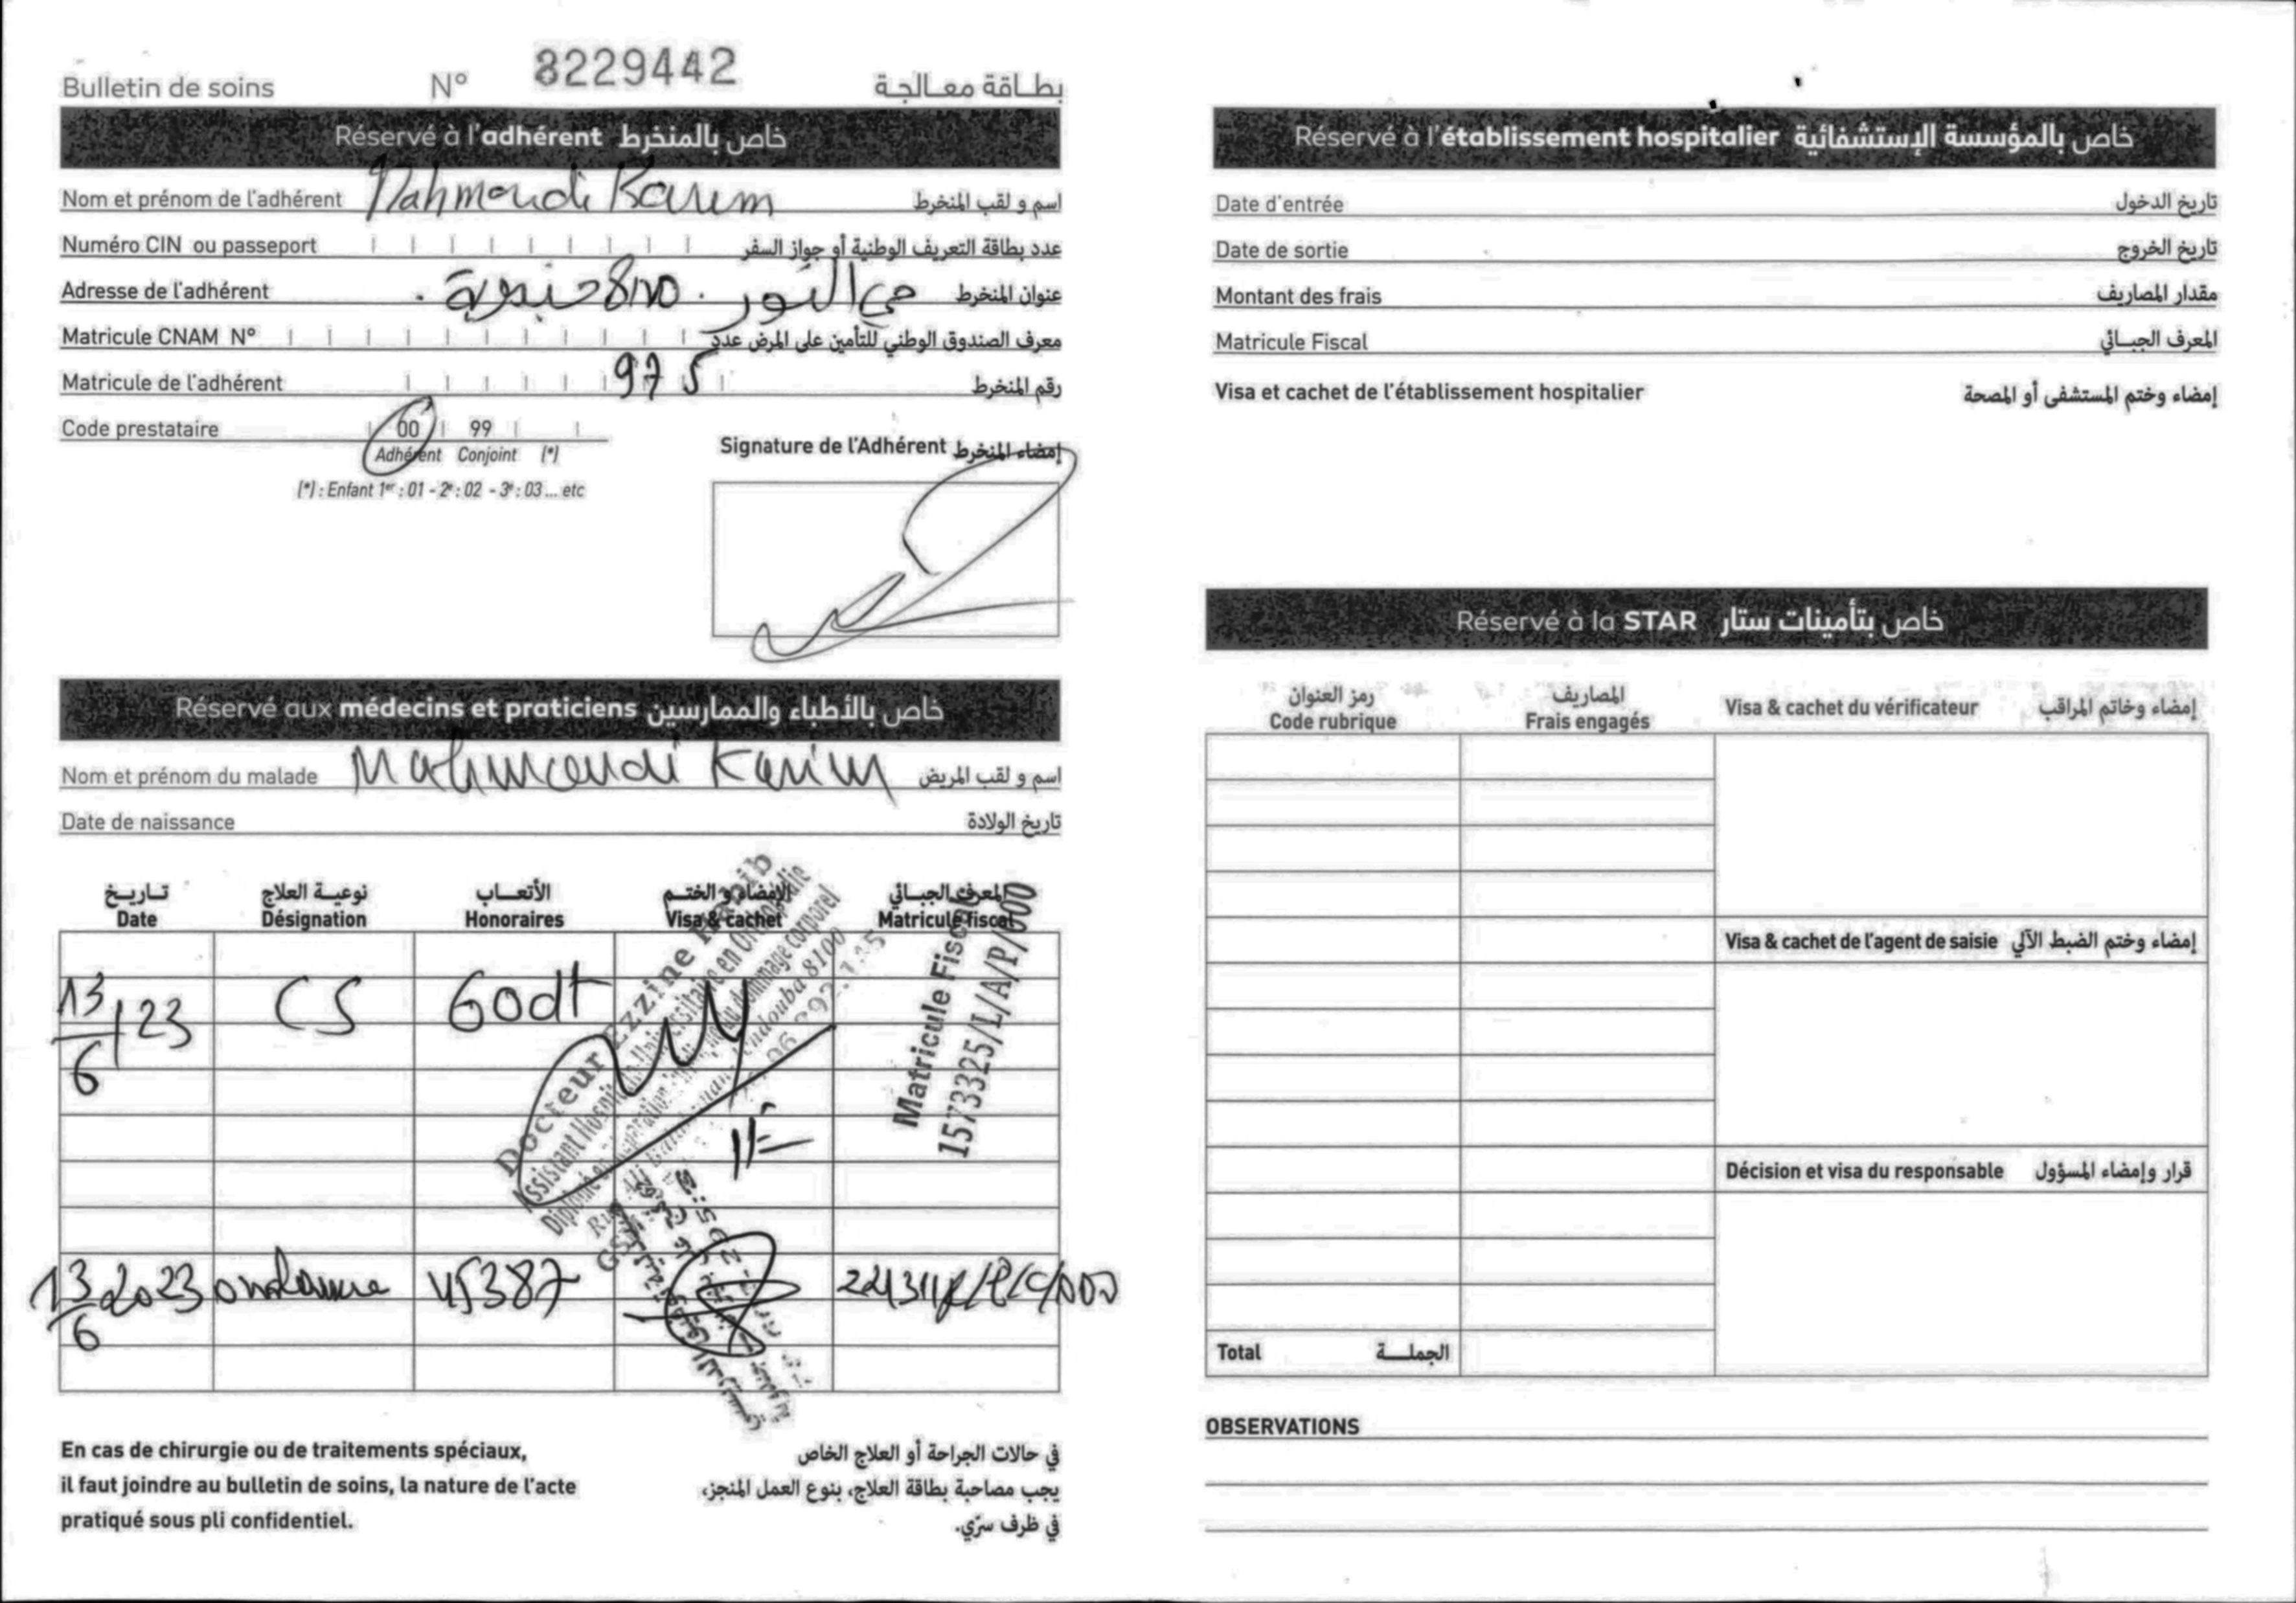 Bulletin de soins N° 8229442 بطاقة معالجة
Réservé à l'adhérent خاص بالمنخرط
Nom et prénom de l'adhérent Mahmoudi Karim اسم و لقب المنخرط
Numéro CIN ou passeport عدد بطاقة التعريف الوطنية أو جواز السفر
Adresse de l'adhérent حي النور . 8110 عنوان المنخرط
Matricule CNAM N° معرف الصندوق الوطني للتأمين على المرض عدد
Matricule de l'adhérent 975 رقم المنخرط
Code prestataire 00 99
Adhérent Conjoint (*)
(*) : Enfant 1er : 01 - 2e : 02 - 3e : 03 ... etc
Signature de l'Adhérent إمضاء المنخرط
Réservé aux médecins et praticiens خاص بالأطباء والممارسين
Nom et prénom du malade Mahmoudi Karim اسم و لقب المريض
Date de naissance تاريخ الولادة
تاريخ نوعية العلاج الأتعاب الإمضاء و الختم المعرف الجبائي
Date Désignation Honoraires Visa & cachet Matricule fiscal
13/6/23 CS 60dt
Docteur Ezzine Habib
Assistant Hospitalo-Universitaire en Orthopédie
Matricule Fiscal
1573325/L/A/P/000
13/6 2023 ordonnance 45387
En cas de chirurgie ou de traitements spéciaux,
il faut joindre au bulletin de soins, la nature de l'acte
pratiqué sous pli confidentiel.
في حالات الجراحة أو العلاج الخاص
يجب مصاحبة بطاقة العلاج، بنوع العمل المنجز،
في ظرف سرّي.
Réservé à l'établissement hospitalier خاص بالمؤسسة الإستشفائية
Date d'entrée تاريخ الدخول
Date de sortie تاريخ الخروج
Montant des frais مقدار المصاريف
Matricule Fiscal المعرف الجبائي
Visa et cachet de l'établissement hospitalier إمضاء وختم المستشفى أو المصحة
Réservé à la STAR خاص بتأمينات ستار
رمز العنوان المصاريف
Code rubrique Frais engagés Visa & cachet du vérificateur إمضاء وخاتم المراقب
Visa & cachet de l'agent de saisie إمضاء وختم الضبط الآلي
Décision et visa du responsable قرار وإمضاء المسؤول
Total الجملة
OBSERVATIONS